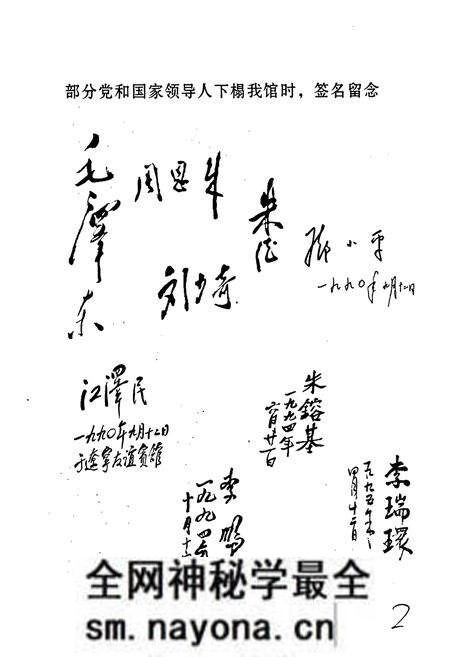 部分党和国家领导人下榻我馆时，签名留念
毛泽东
周恩来
朱德
刘少奇
邓小平
一九九〇年九月十二日
江澤民
一九九〇年九月十二日
于遼寧友谊賓館
朱鎔基
一九九四年
六月廿一日
李鹏
一九九四年
李瑞環
一九九五年
四月十二日
全网神秘学最全
sm.nayona.cn
2